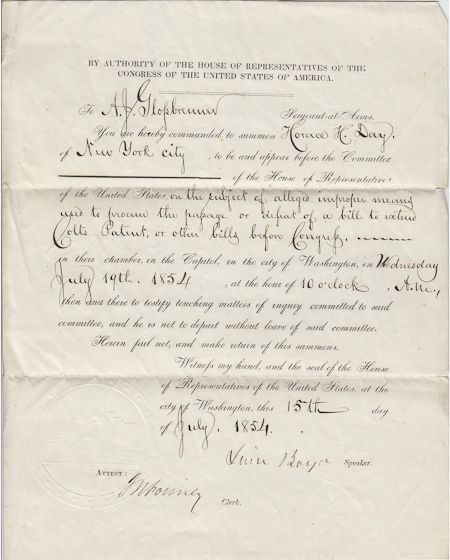 BY AUTHORITY OF THE HOUSE OF REPRESENTATIVES OF THE
CONGRESS OF THE UNITED STATES OF AMERICA.
To A. J. Glossbrenner Sergeant-at-Arms.
You are hereby commanded to summon Horace H. Day,
of New York city , to be and appear before the Committee
of the House of Representatives
of the United States, on the subject of alleged improper means
used to procure the passage or defeat of a bill to extend
Colts Patent, or other bills before Congress.
in their chamber, in the Capitol, in the city of Washington, on Wednesday
July 19th. 1854 , at the hour of 10 o'clock , A.M.,
then and there to testify touching matters of inquiry committed to said
committee, and he is not to depart without leave of said committee.
Herein fail not, and make return of this summons.
Witness my hand, and the seal of the House
of Representatives of the United States, at the
city of Washington, this 15th day
of July. 1854.
Linn Boyd Speaker.
ATTEST:
JW Forney Clerk.